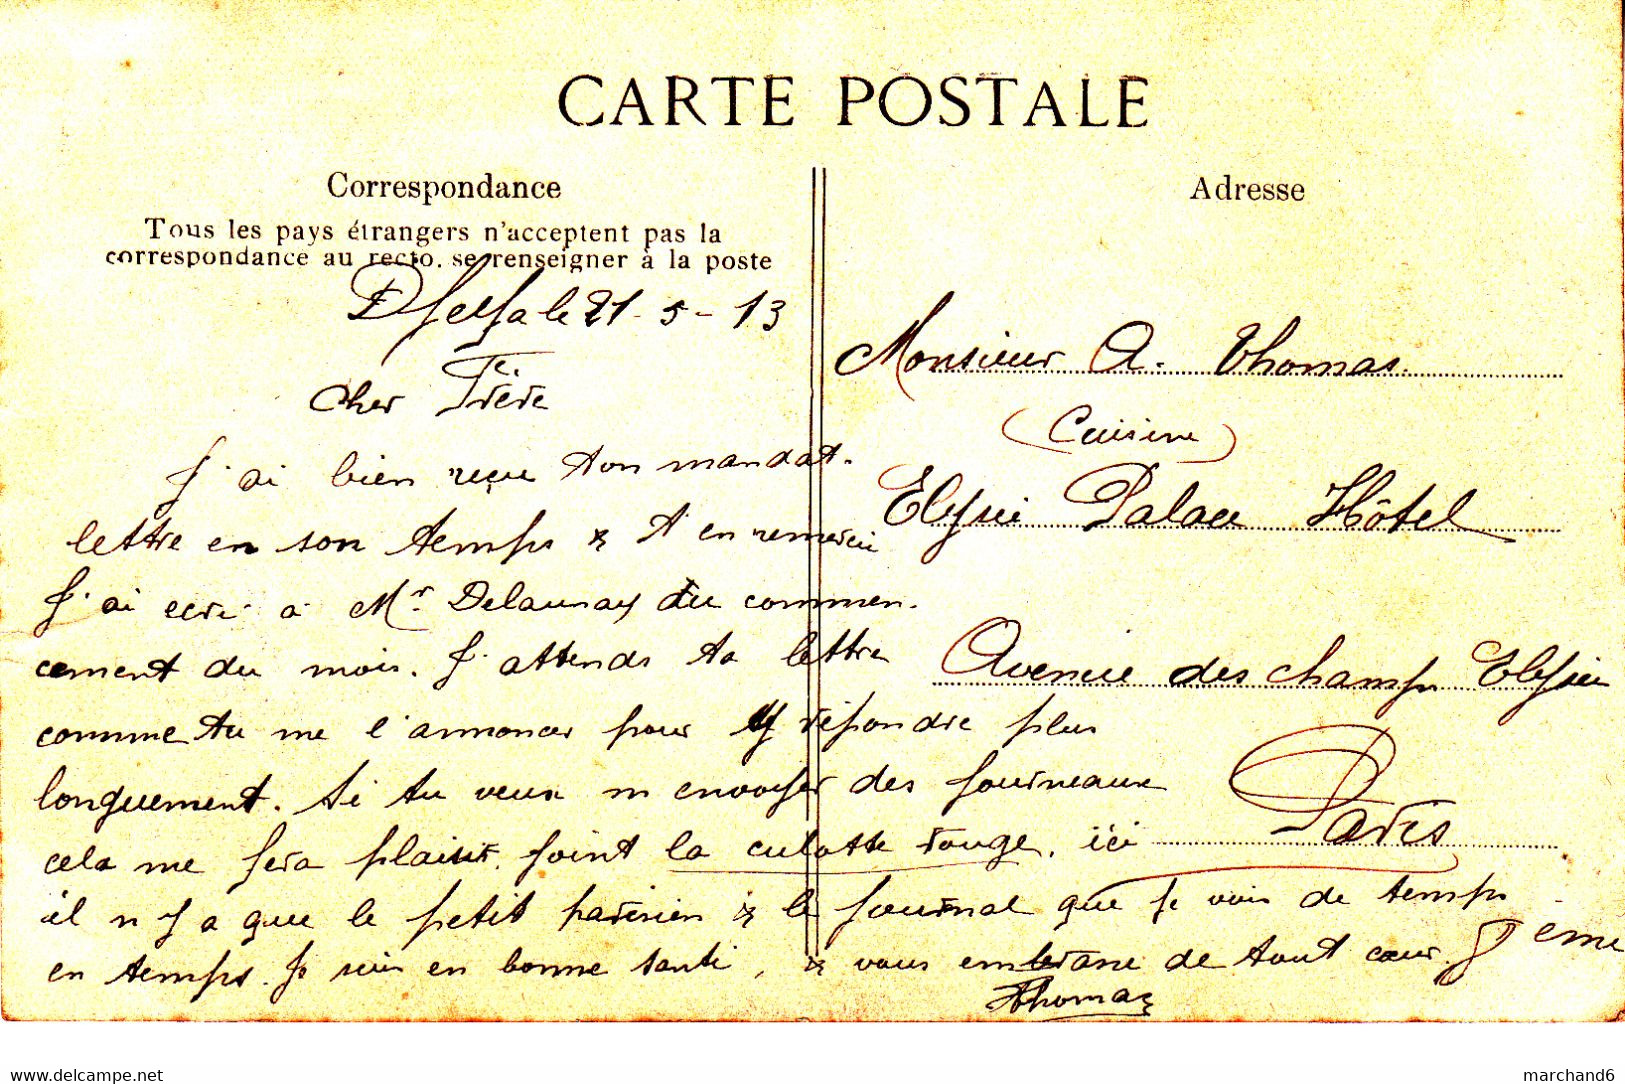 CARTE POSTALE
Correspondance
Tous les pays étrangers n'acceptent pas la
correspondance au recto. se renseigner à la poste
Djelfa le 21-5-13
Cher Frère
J'ai bien reçu ton mandat.
lettre en son temps & t'en remercie
J'ai ecri à Mr Delaunay du commen.
cement du mois. J'attends ta lettre
comme tu me l'annonces pour y répondre plus
longuement. Si tu veux m envoyer des journeaux
cela me fera plaisir. joint la culotte rouge. ici
il n y a que le petit parisien & le journal que je vois de temps
en temps. Je suis en bonne santé, & vous embrasse de tout cœur.
Thomas
Adresse
Monsieur A. Thomas.
(Cuisine)
Elysée Palace Hôtel
Avenue des Champs Elysées
Paris
8eme
www.delcampe.net
marchand6